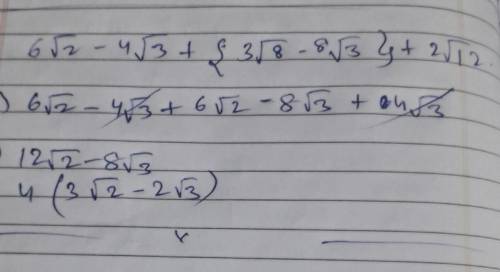 6√2 - 4√3 + { 3√8 - 8√3 } + 2√12.
) 6√2 - 4√3 + 6√2 - 8√3 + 4√3
) 12√2 - 8√3
4 (3√2 - 2√3)